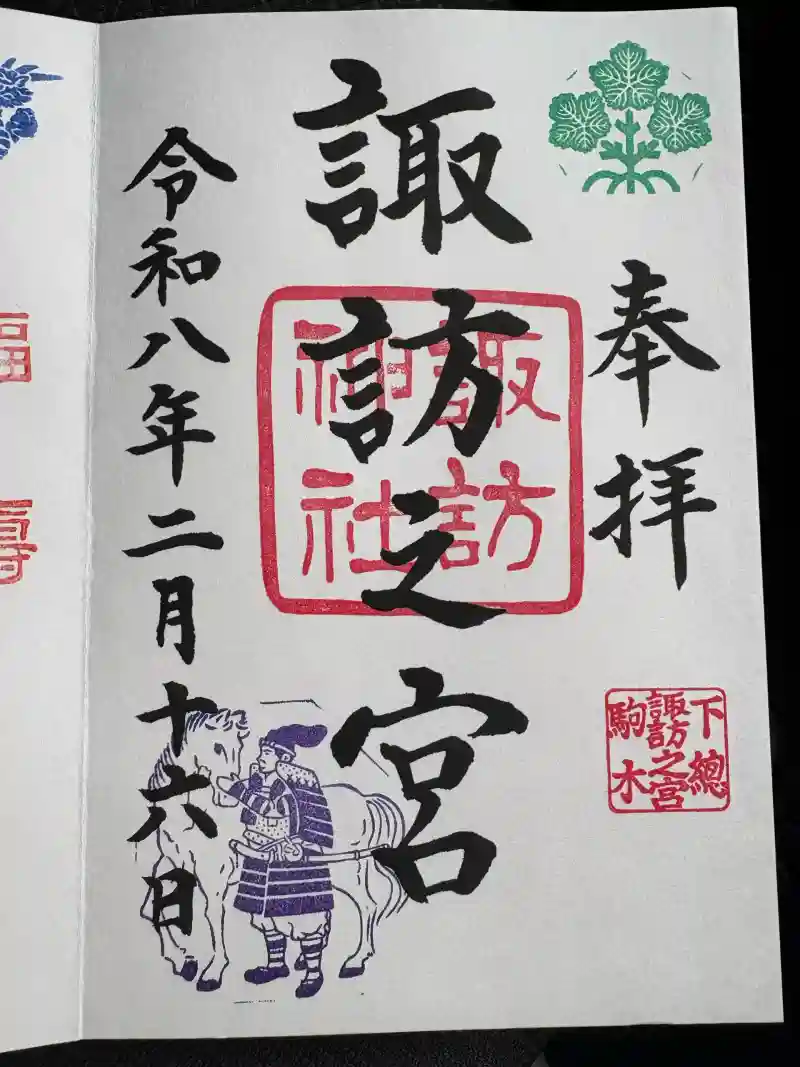 奉拝
下總
諏訪之宮
駒木
諏訪之宮
諏訪
神社
令和八年二月十六日
福
寿